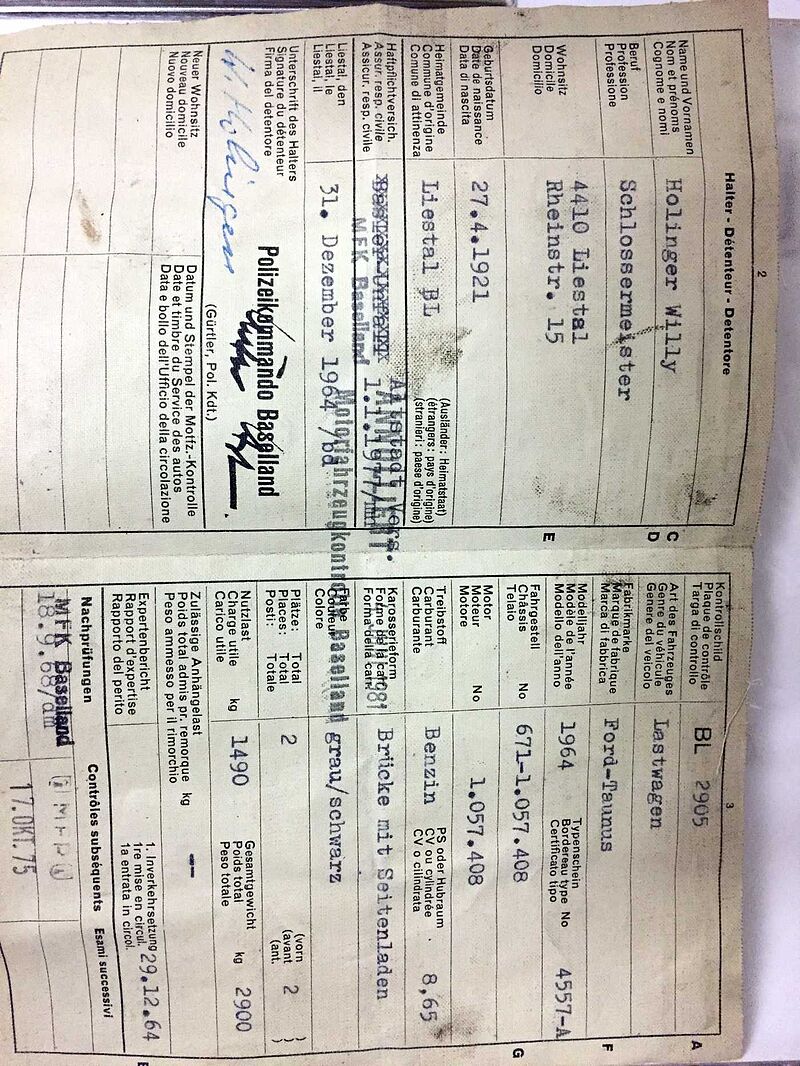 2
Halter - Détenteur - Detentore
Name und Vornamen
Nom et prénoms
Cognome e nomi
Holinger Willy
C
Beruf
Profession
Professione
Schlossermeister
D
Wohnsitz
Domicile
Domicilio
4410 Liestal
Rheinstr. 15
E
Geburtsdatum
Date de naissance
Data di nascita
27.4.1921
Heimatgemeinde
Commune d'origine
Comune di attinenza
Liestal BL
(Ausländer: Heimatstaat)
(étrangers: pays d'origine)
(stranieri: paese d'origine)
Haftpflichtversich.
Assur. resp. civile
Assicur. resp. civile
Altstadt Vers.
1.1.1977/
MFK Baselland
Liestal, den
Liestal, le
Liestal, il
31. Dezember 1964 /bd
Motorfahrzeugkontrolle Baselland
Unterschrift des Halters
Signature du détenteur
Firma del detentore
W. Holinger
Polizeikommando Baselland
(Gürtler, Pol. Kdt.)
Neuer Wohnsitz
Nouveau domicile
Nuovo domicilio
Datum und Stempel der Motfz.-Kontrolle
Date et timbre du Service des autos
Data e bollo dell'Ufficio della circolazione
3
Kontrollschild
Plaque de contrôle
Targa di controllo
BL 2905
A
Art des Fahrzeuges
Genre du véhicule
Genere del veicolo
Lastwagen
Fabrikmarke
Marque de fabrique
Marca di fabbrica
Ford-Taunus
F
Modelljahr
Modèle de l'année
Modello dell'anno
1964
Typenschein
Bordereau type No
Certificato tipo
4557-A
Fahrgestell
Châssis No
Telaio
671-1.057.408
G
Motor
Moteur No
Motore
1.057.408
Treibstoff
Carburant
Carburante
Benzin
PS oder Hubraum
CV ou cylindrée
CV o cilindrata
8,65
Karosserieform
Forme de la carr.
Forma della carr.
Brücke mit Seitenladen
Farbe
Couleur
Colore
grau/schwarz
Plätze: Total
Places: Total
Posti: Totale
2
(vorn
(avant
(ant.
2
)
Nutzlast
Charge utile kg
Carico utile
1490
Gesamtgewicht
Poids total kg
Peso totale
2900
Zulässige Anhängelast
Poids total admis pr. remorque kg
Peso ammesso per il rimorchio
—
Expertenbericht
Rapport d'expertise
Rapporto del perito
1. Inverkehrsetzung
1re mise en circul.
1a entrata in circol.
29.12.64
Nachprüfungen
Contrôles subséquents
Esami successivi
MFK Baselland
18.9.68/am
17.OKT.75